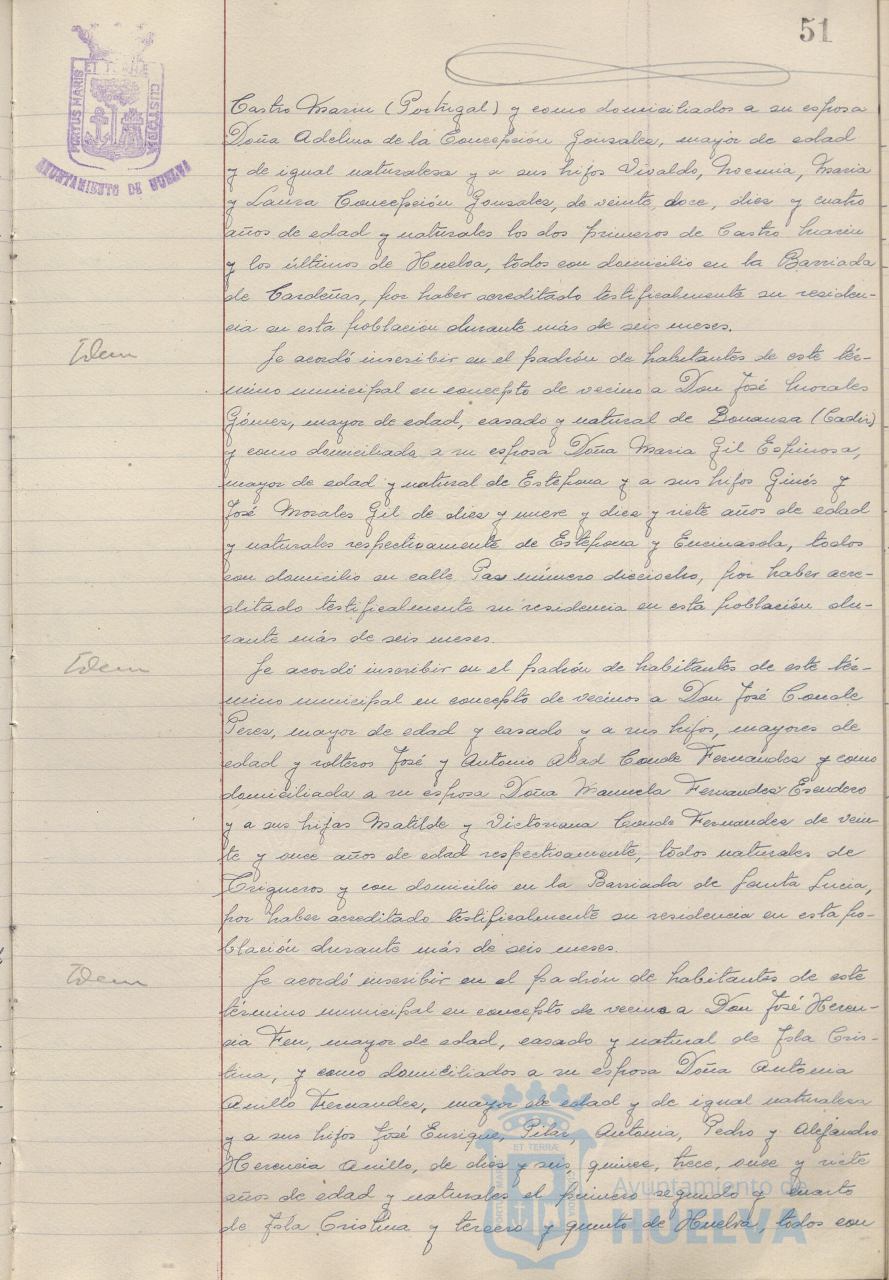 51
PORTUS MARIS ET TERRÆ CUSTODIA
AYUNTAMIENTO DE HUELVA
Castro Marin (Portugal) y como domiciliados a su esposa
Doña Adelina de la Concepción Gonzales, mayor de edad
y de igual naturalesa y a sus hijos Vivaldo, Noemia, Maria
y Laura Concepción Gonzales, de veinte, doce, dies y cuatro
años de edad y naturales los dos primeros de Castro Marin
y los últimos de Huelva, todos con domicilio en la Barriada
de Cardeñas, por haber acreditado testificalmente su residen-
cia en esta población durante más de seis meses.
Idem
Se acordó inscribir en el padrón de habitantes de este tér-
mino municipal en concepto de vecino a Don José Morales
Gómes, mayor de edad, casado y natural de Bonansa (Cadiz)
y como domiciliada a su esposa Doña Maria Gil Espinosa,
mayor de edad y natural de Estepona y a sus hijos Ginés y
José Morales Gil de dies y nueve y dies y siete años de edad
y naturales respectivamente de Estepona y Encinasola, todos
con domicilio en calle Pas número dieciocho, por haber acre-
ditado testificalmente su residencia en esta población du-
rante más de seis meses.
Idem
Se acordó inscribir en el padrón de habitantes de este tér-
mino municipal en concepto de vecinos a Don José Conde
Peres, mayor de edad y casado y a sus hijos, mayores de
edad y solteros José y Antonio Abad Conde Fernandes y como
domiciliada a su esposa Doña Manuela Fernandes Escudero
y a sus hijas Matilde y Victoriana Conde Fernandes de vein-
te y once años de edad respectivamente, todos naturales de
Trigueros y con domicilio en la Barriada de Santa Lucia,
por haber acreditado testificalmente su residencia en esta po-
blación durante más de seis meses.
Idem
Se acordó inscribir en el padrón de habitantes de este
término municipal en concepto de vecino a Don José Heren-
cia Feu, mayor de edad, casado y natural de Isla Cris-
tina, y como domiciliados a su esposa Doña Antonia
Anillo Fernandes, mayor de edad y de igual naturalesa
y a sus hijos José Enrique, Pilar, Antonia, Pedro y Alejandro
Herencia Anillo, de dies y seis, quince, trece, once y siete
años de edad y naturales el primero segundo y cuarto
de Isla Cristina y tercero y quinto de Huelva, todos con
ET TERRA
Ayuntamiento de
HUELVA